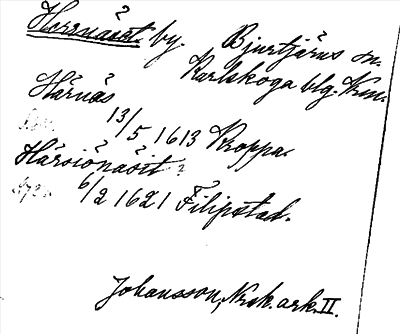 Herrnäset. by. Bjurtjärns sn.
Karlskoga blg. Krm.
Härnäs
13/5 1613 Kroppa.
Härsiönäsit?
6/2 1621 Filipstad.
Johansson, Nrk. ark. II.